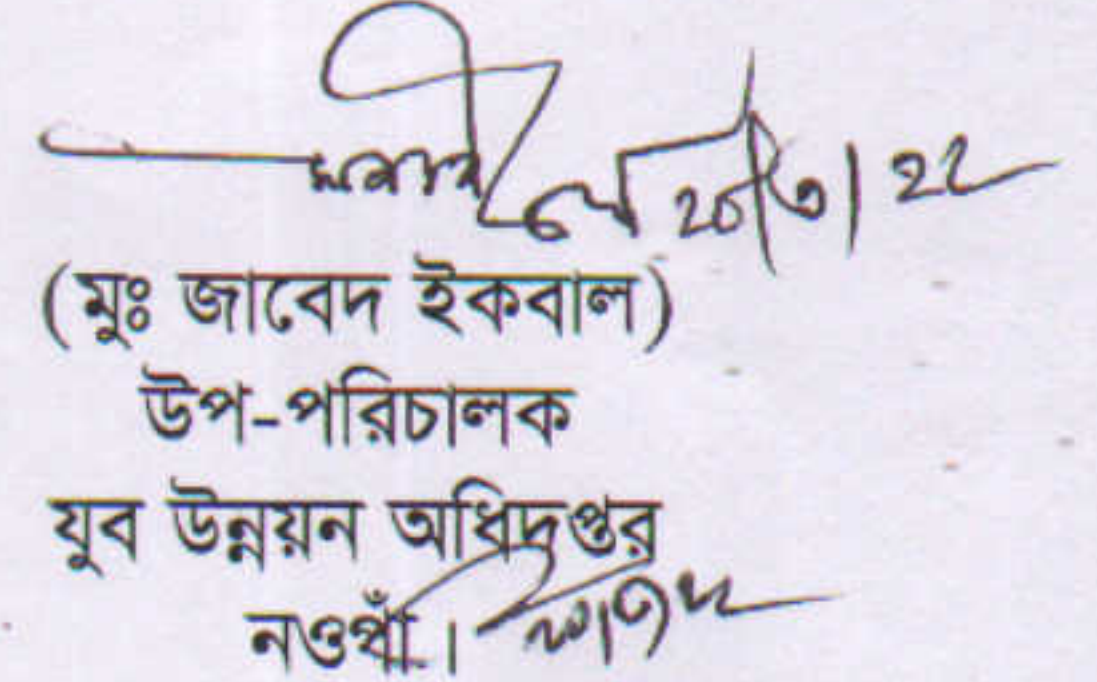 ২০/৩/২২
(মুঃ জাবেদ ইকবাল)
উপ-পরিচালক
যুব উন্নয়ন অধিদপ্তর
নওগাঁ।